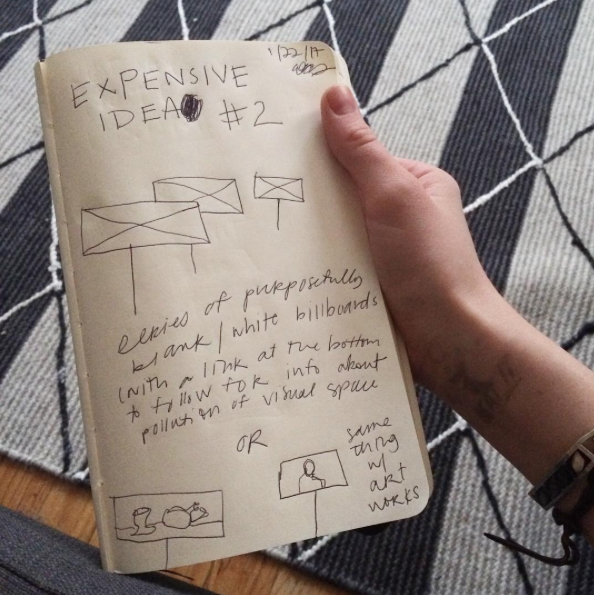 1/22/17
EXPENSIVE
IDEA #2
series of purposefully
blank/white billboards
(with a link at the bottom
to follow for info about
pollution of visual space
OR
same
thing
w/
art
works